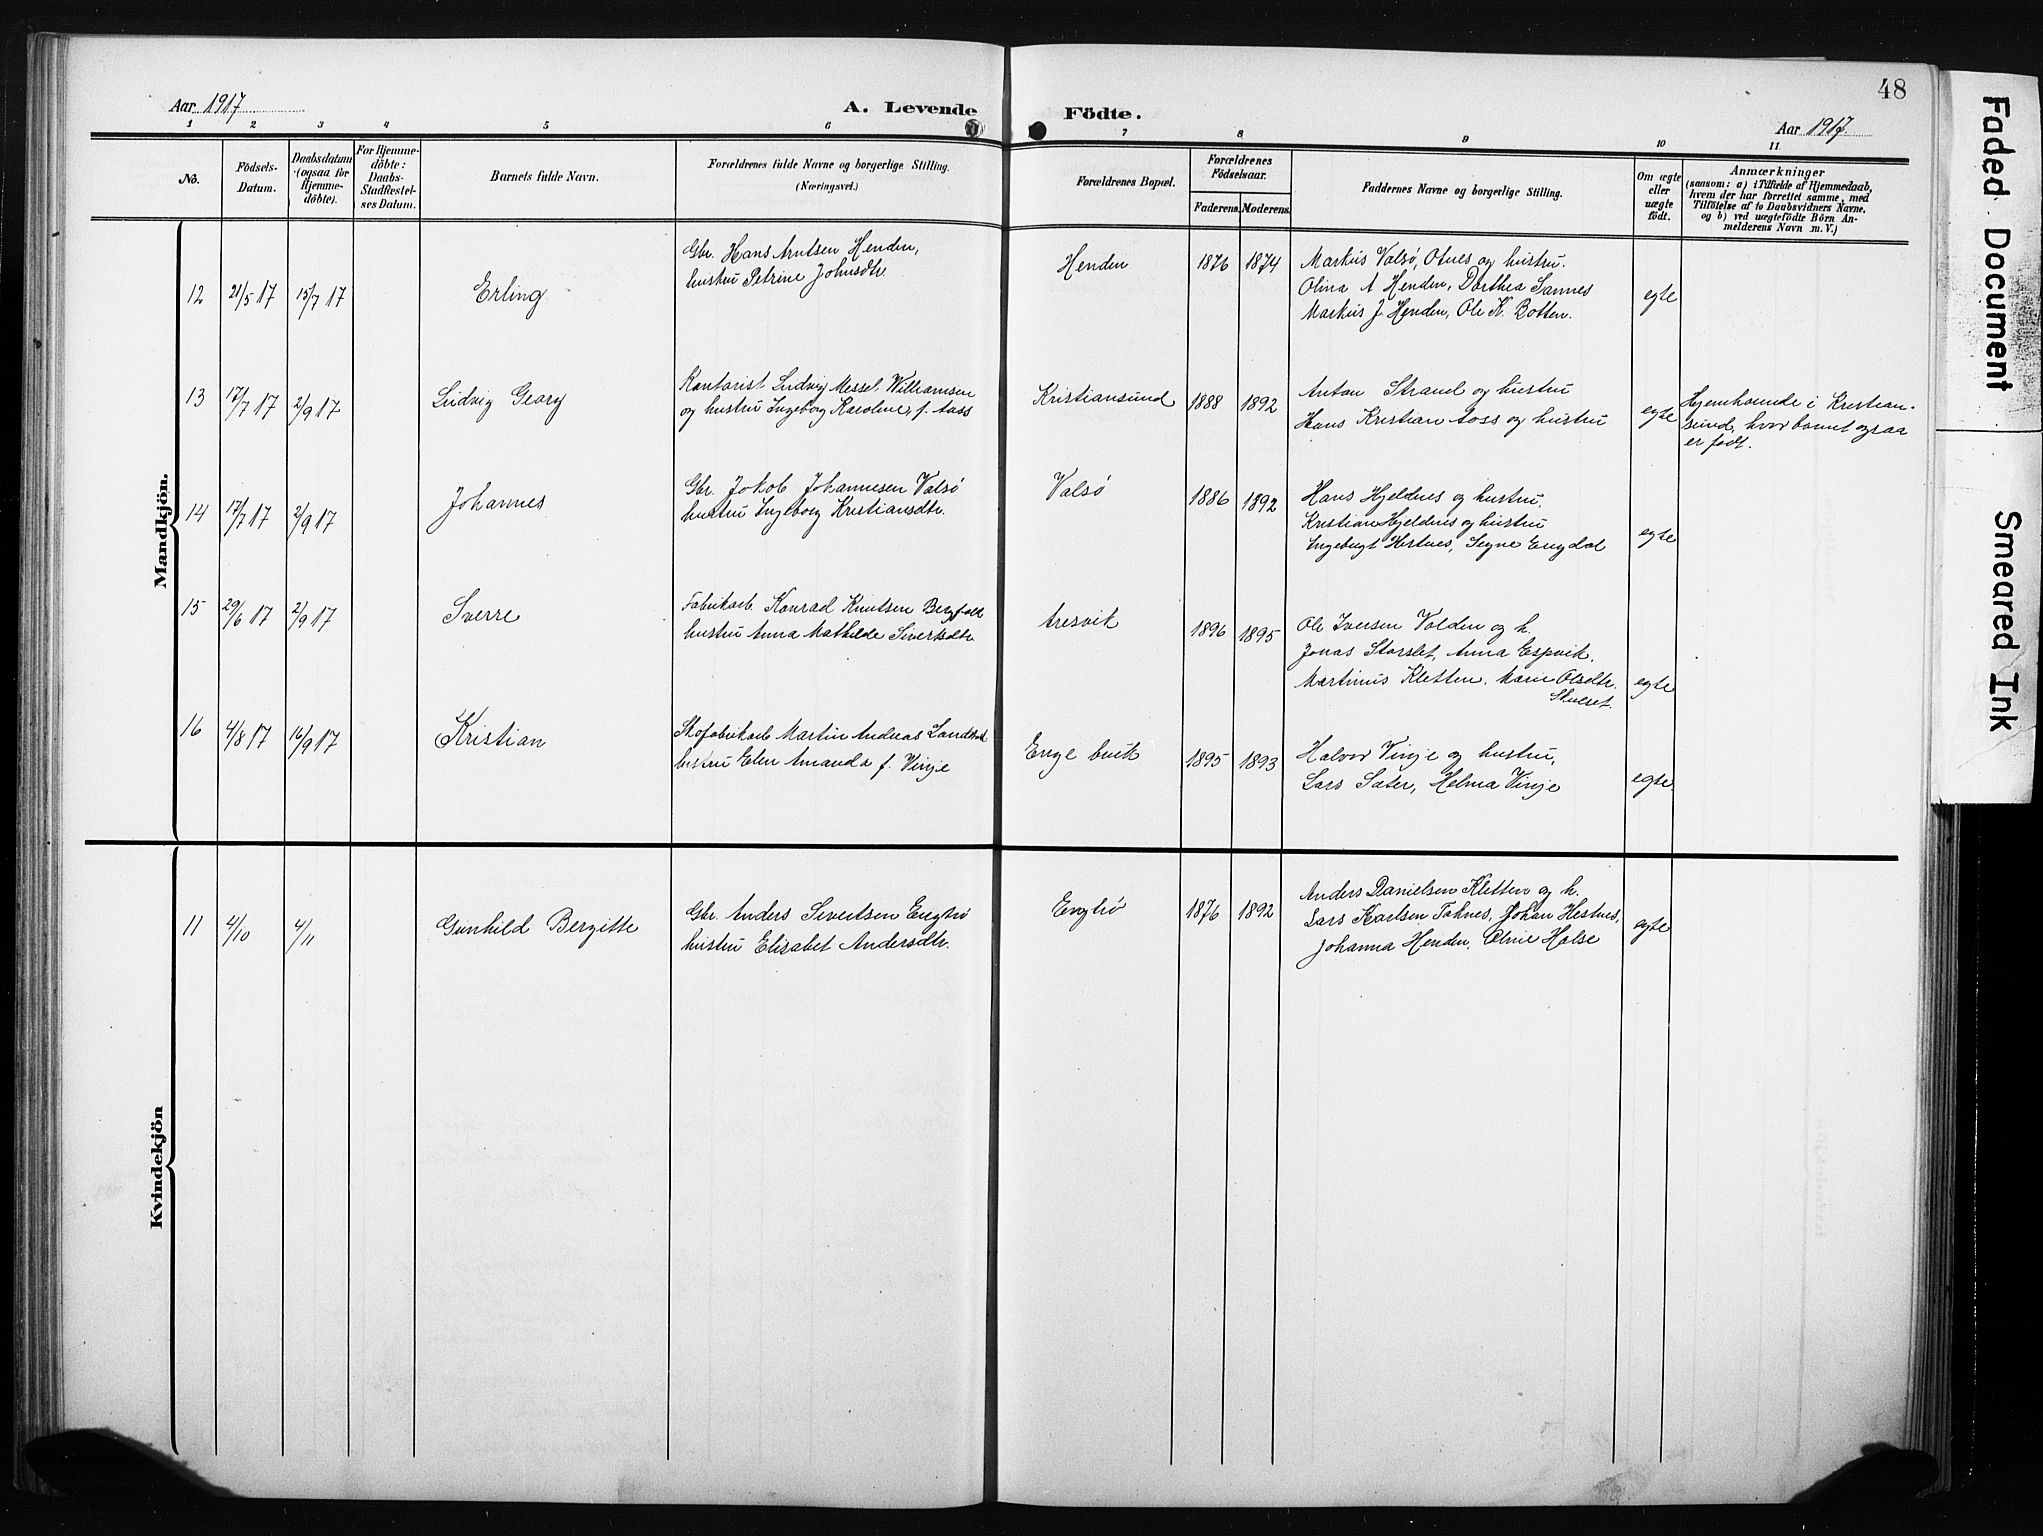 48
Aar 1917
A. Levende
Födte.
Aar 1917
1 2 3 4 5 6 7 8 9 10 11
No.
Födsels-
Datum.
Daabsdatum
(ogsaa for
Hjemme-
döbte).
For Hjemme-
döbte:
Daabs-
Stadfæstel-
ses Datum.
Barnets fulde Navn.
Forældrenes fulde Navne og borgerlige Stilling.
(Næringsvei.)
Forældrenes Bopæl.
Forældrenes
Födselsaar.
Faderens.
Moderens.
Faddernes Navne og borgerlige Stilling.
Om ægte
eller
uægte
födt.
Anmærkninger
(saasom: a) i Tilfælde af Hjemmedaab,
hvem der har forrettet samme, med
Tilföielse af to Daabsvidners Navne,
og b) ved uægtefödte Börn An-
melderens Navn m. V.)
Mandkjön.
12
21/5 17
15/7 17
Erling
Gbr. Hans Arntsen Henden,
hustru Petrine Johnsdtr.
Henden
1876
1874
Markus Valsø, Otnes og hustru.
Olina A Henden, Dorthea Sannes
Markus J Henden, Ole K. Botten.
egte
13
17/7 17
2/9 17
Ludvig Georg
Kontorist Ludvig Messel Williamsen
og hustru Ingeborg Karoline, f. Aass
Kristiansund
1888
1892
Anton Strand og hustru
Hans Kristian Aass og hustru
egte
Hjemhørende i Kristian-
sund, hvor barnet ogsaa
er født.
14
17/7 17
2/9 17
Johannes
Gbr. Jakob Johannesen Valsø
hustru Ingeborg Kristiansdtr.
Valsø
1886
1892
Hans Hjeldnes og hustru,
Kristian Hjeldnes og hustru
Ingebrigt Hestnes, Signe Engdal
egte
15
29/6 17
2/9 17
Sverre
Fabrikarb. Konrad Knutsen Bergfald
hustru Anna Mathilde Sivertsdtr.
Aresvik
1896
1895
Ole Iversen Volden og h.
Jonas Storslet, Anna Espvik,
Martinus Kletten, Marie Olsdtr.
Skulset.
egte
16
4/8 17
16/9 17
Kristian
Skofabrikarb Martin Andreas
hustru Elen Amanda f. Vinje
1895
1893
Halvor Vinje og hustru,
Lars Sæter, Helma Vinje
egte
Kvindekjön
11
4/10
4/11
Gunhild Bergitte
Gbr. Anders Sivertsen Engsø
hustru Elisabet Andersdtr.
Engsø
1876
1892
Anders Danielsen Kletten og h.
Lars Karlsen Taknes, Johan Hestnes,
Johanna Henden, Oline Halse
egte
Faded Document
Smeared Ink